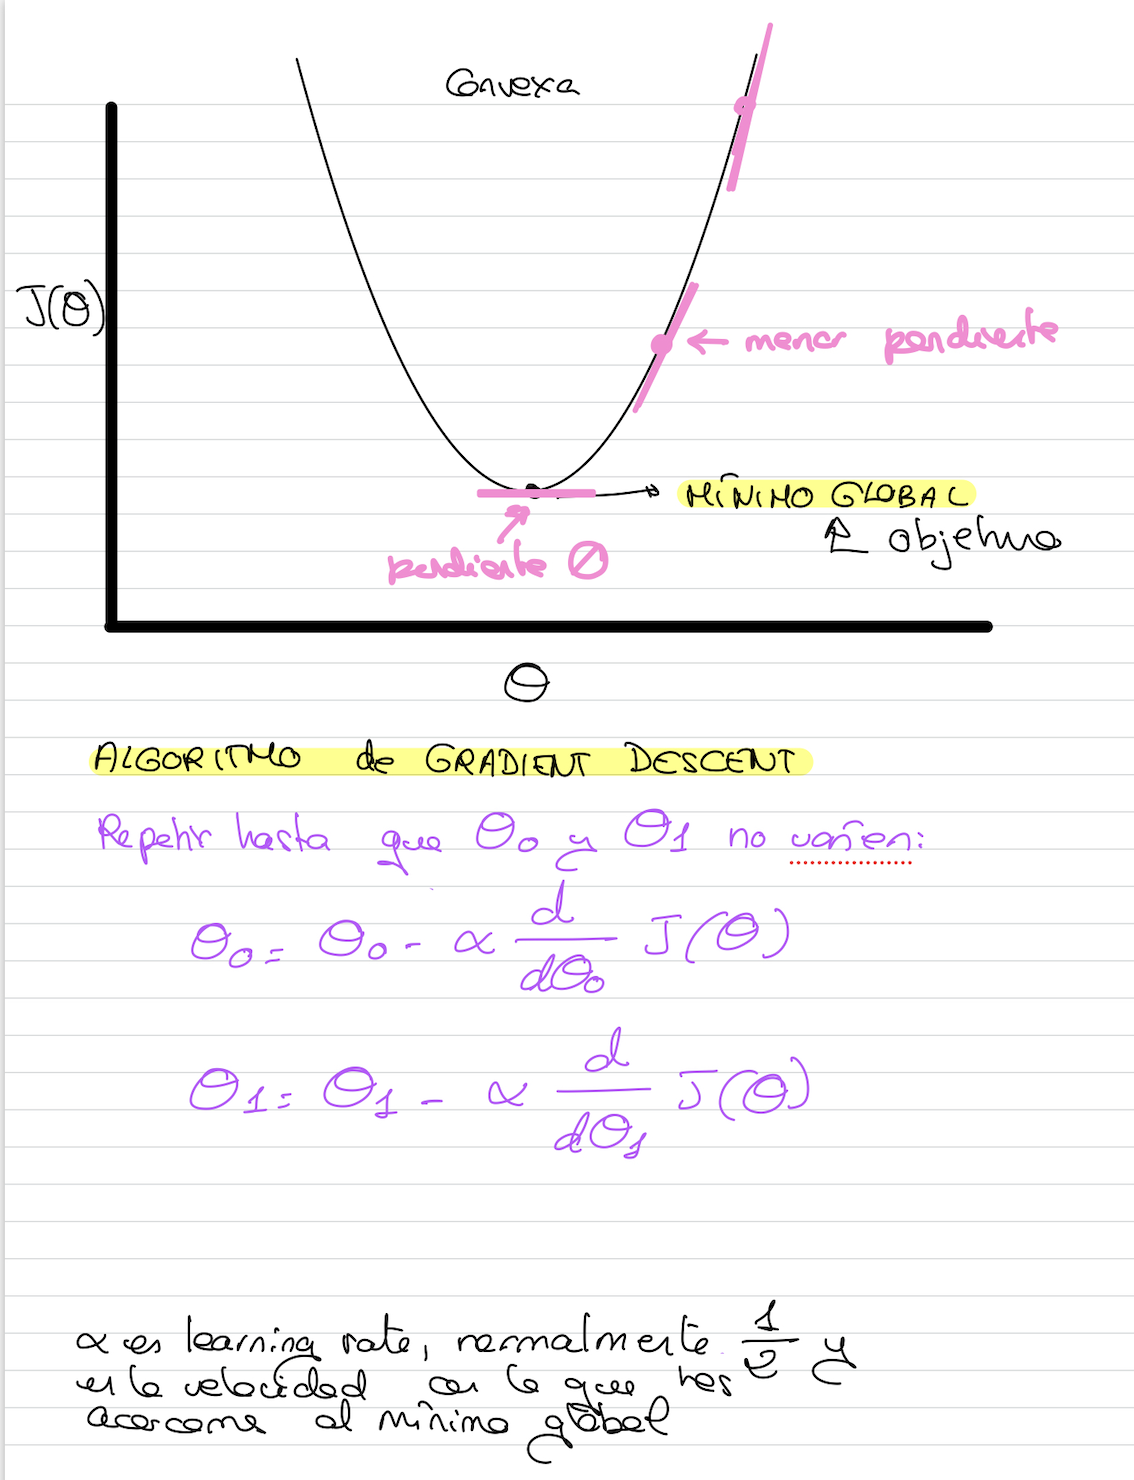 Convexa
J(θ)
← menor pendiente
MÍNIMO GLOBAL
objetivo
pendiente ∅
θ
ALGORITMO de GRADIENT DESCENT
Repetir hasta que θ₀ y θ₁ no varíen:
θ₀ = θ₀ - α d/dθ₀ J(θ)
θ₁ = θ₁ - α d/dθ₁ J(θ)
α es learning rate, normalmente 1/2 y
es la velocidad con la que nos
acercamos al mínimo global